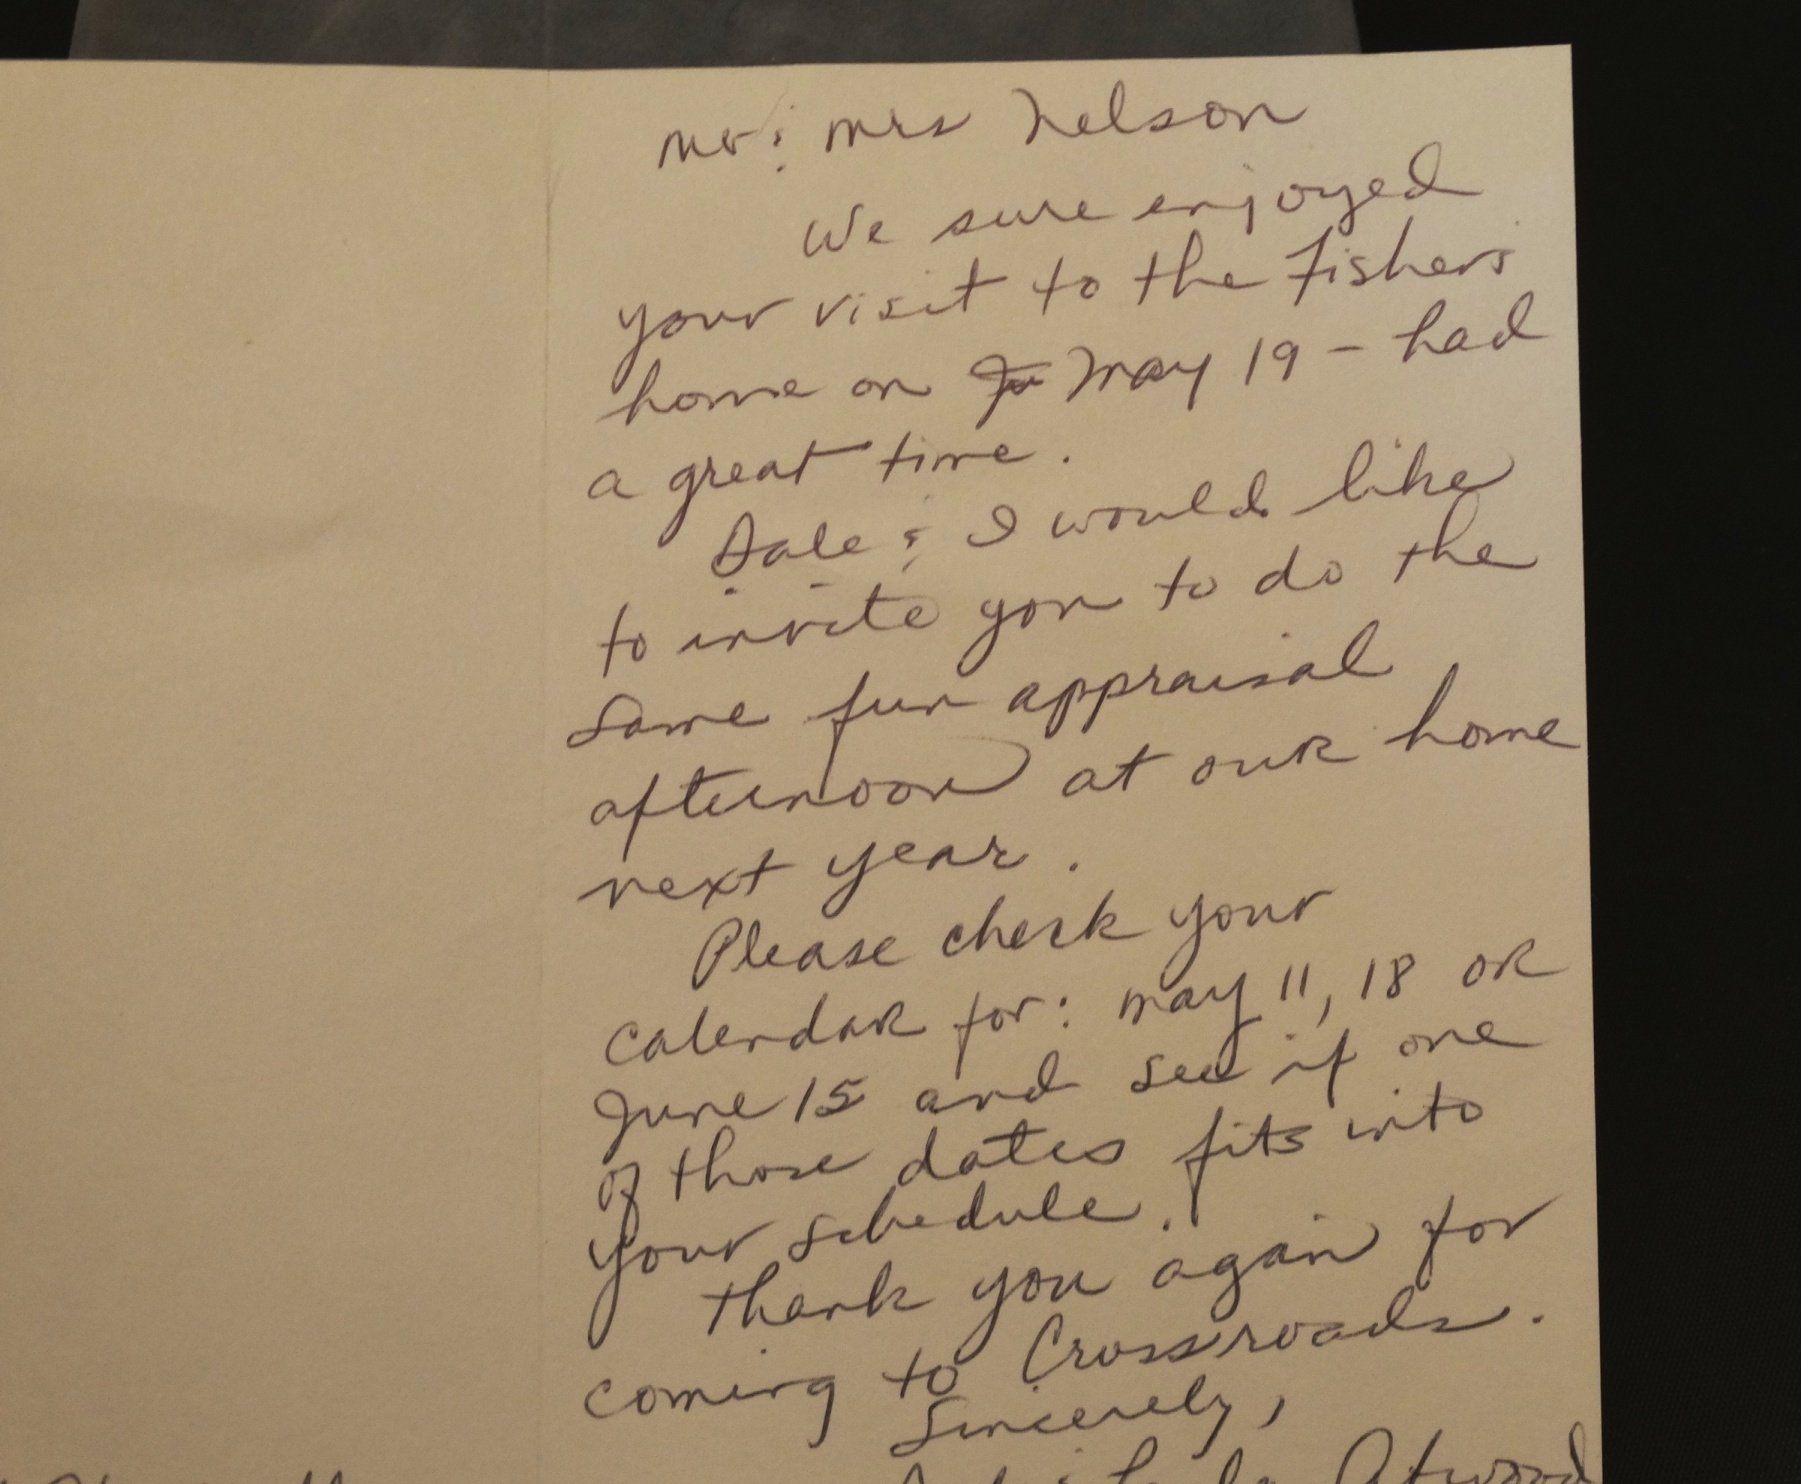 Mr & Mrs Nelson
We sure enjoyed
your visit to the Fishers
home on Ju May 19 - had
a great time.
Dale & I would like
to invite you to do the
same fun appraisal
afternoon at our home
next year.
Please check your
calendar for: May 11, 18 or
June 15 and see if one
of those dates fits into
your schedule.
Thank you again for
coming to Crossroads.
Sincerely,
Atwood